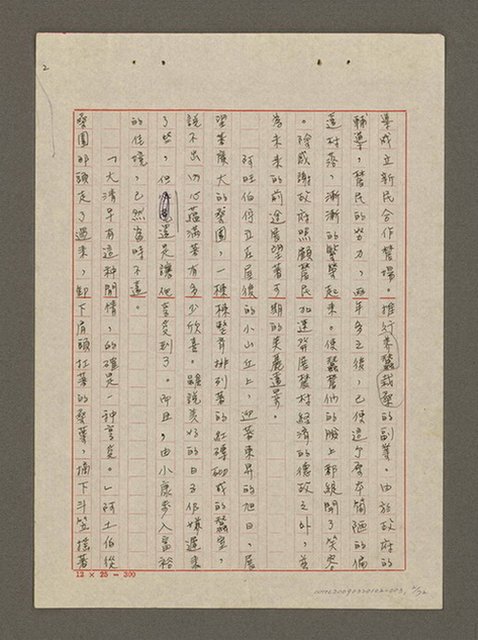 2
導成立新民合作農場。推行養蠶栽桑的副業。由於政府的
輔導，農民的努力，兩年多之後，已使這個原本簡陋的偏
遠村落，漸漸的繁榮起來。使蠶農們的臉上都綻開了笑容
。除感謝政府照顧農民加速發展農村經濟的德政之外，並
為未來的前途展望著可期的美麗遠景。
阿旺伯佇立在屋後的小山丘上，迎著東昇的旭日，展
望著廣大的桑園，一棟棟整齊排列著的紅磚砌成的蠶室，
說不出內心蘊滿著有多少欣喜。雖說美好的日子仍嫌遲來
了些，但還是讓他享受到了。而且，由小康步入富裕
的佳境，已然為時不遠。
「大清早有這種閒情，的確是一種享受。」阿土伯從
桑園那頭走了過來，卸下肩頭扛著的桑葉，摘下斗笠搖著
12 × 25 = 300